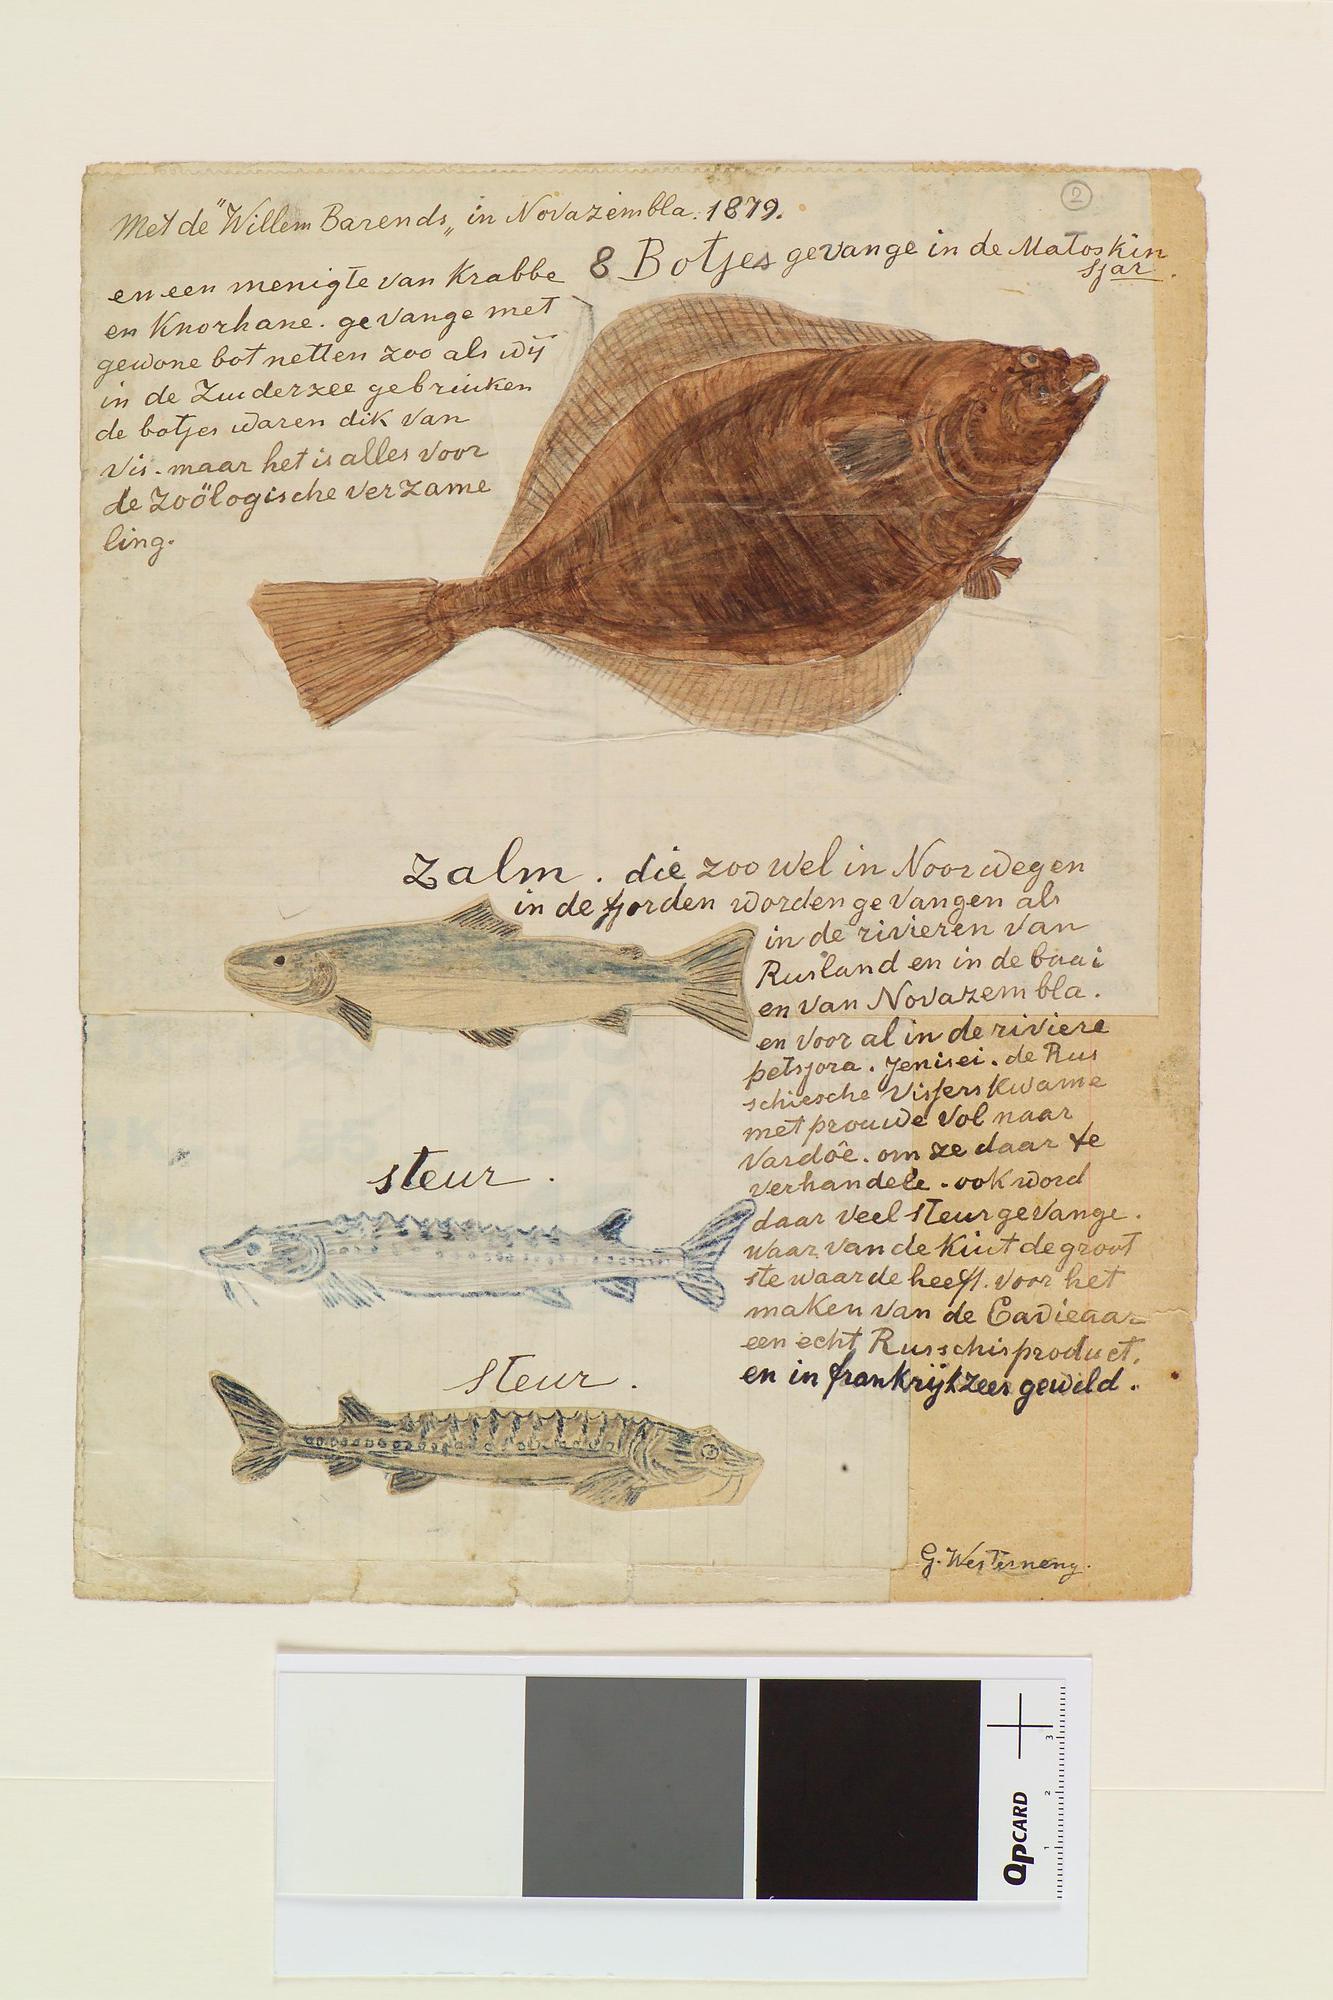 2
Met de "Willem Barends„ in Novazembla. 1879.
8 Botjes gevange in de Matoskin
sjar.
en een menigte van Krabbe
en Knorhane. gevange met
gewone bot netten zoo als wij
in de Zuiderzee gebruiken
de botjes waren dik van
vis. maar het is alles voor
de Zoölogische verzame
ling.
Zalm. die zoo wel in Noorwegen
in de fjorden worden gevangen als
in de rivieren van
Rusland en in de baai
en van Novazembla.
en voor al in de riviere
petsjora. Jenisei. de Rus
schiesche vissers kwame
met prouwe vol naar
Vardöe. om ze daar te
verhandele. ook word
daar veel steur gevange.
waar van de Kuit de groot
ste waarde heeft. voor het
maken van de Cavieaar
een echt Russchis product.
en in frankrijk zeer gewild.
steur.
steur.
G. Westerneng.
QPCARD
1 2 3